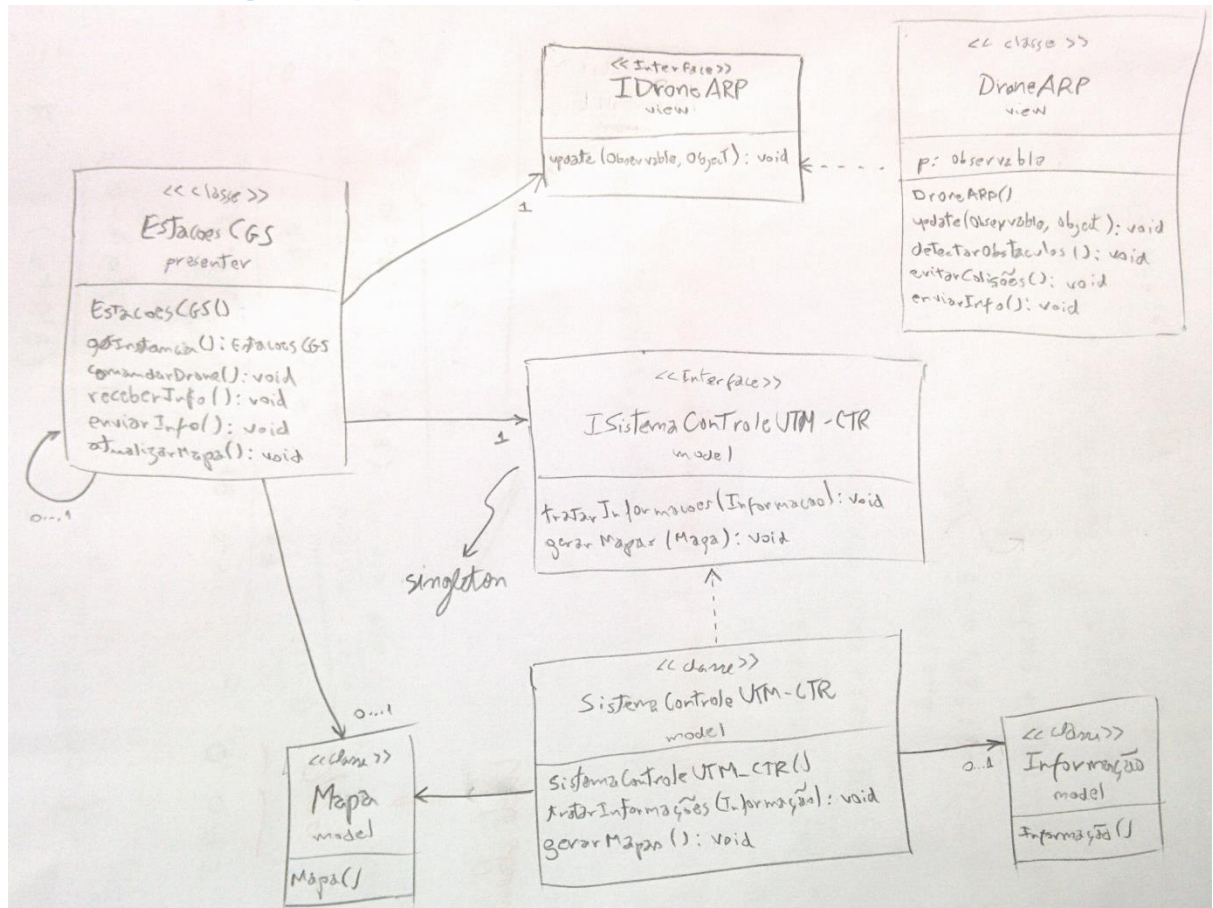 <<Interface>>
IDroneARP
view
update (Observable, Object) : void
1
<< classe >>
DroneARP
view
p: observable
DroneARP()
update(Observable, object): void
detectarObstaculos (): void
evitarColisões(): void
enviarInfo(): void
<< classe >>
Estacoes CGS
presenter
EstacoesCGS()
getInstancia(): EstacoesCGS
comandarDrone(): void
receberInfo(): void
enviarInfo(): void
atualizarMapa(): void
0...1
1
<<Interface>>
ISistema Controle UTM-CTR
model
tratarInformacoes (Informacao): void
gerar Mapas (Mapa): void
singleton
<< classe >>
Sistema Controle UTM-CTR
model
SistemaControleUTM_CTR()
tratarInformações (Informação): void
gerarMapas (): void
0...1
<<classe>>
Mapa
model
Mapa()
0...1
<<classe>>
Informação
model
Informação()